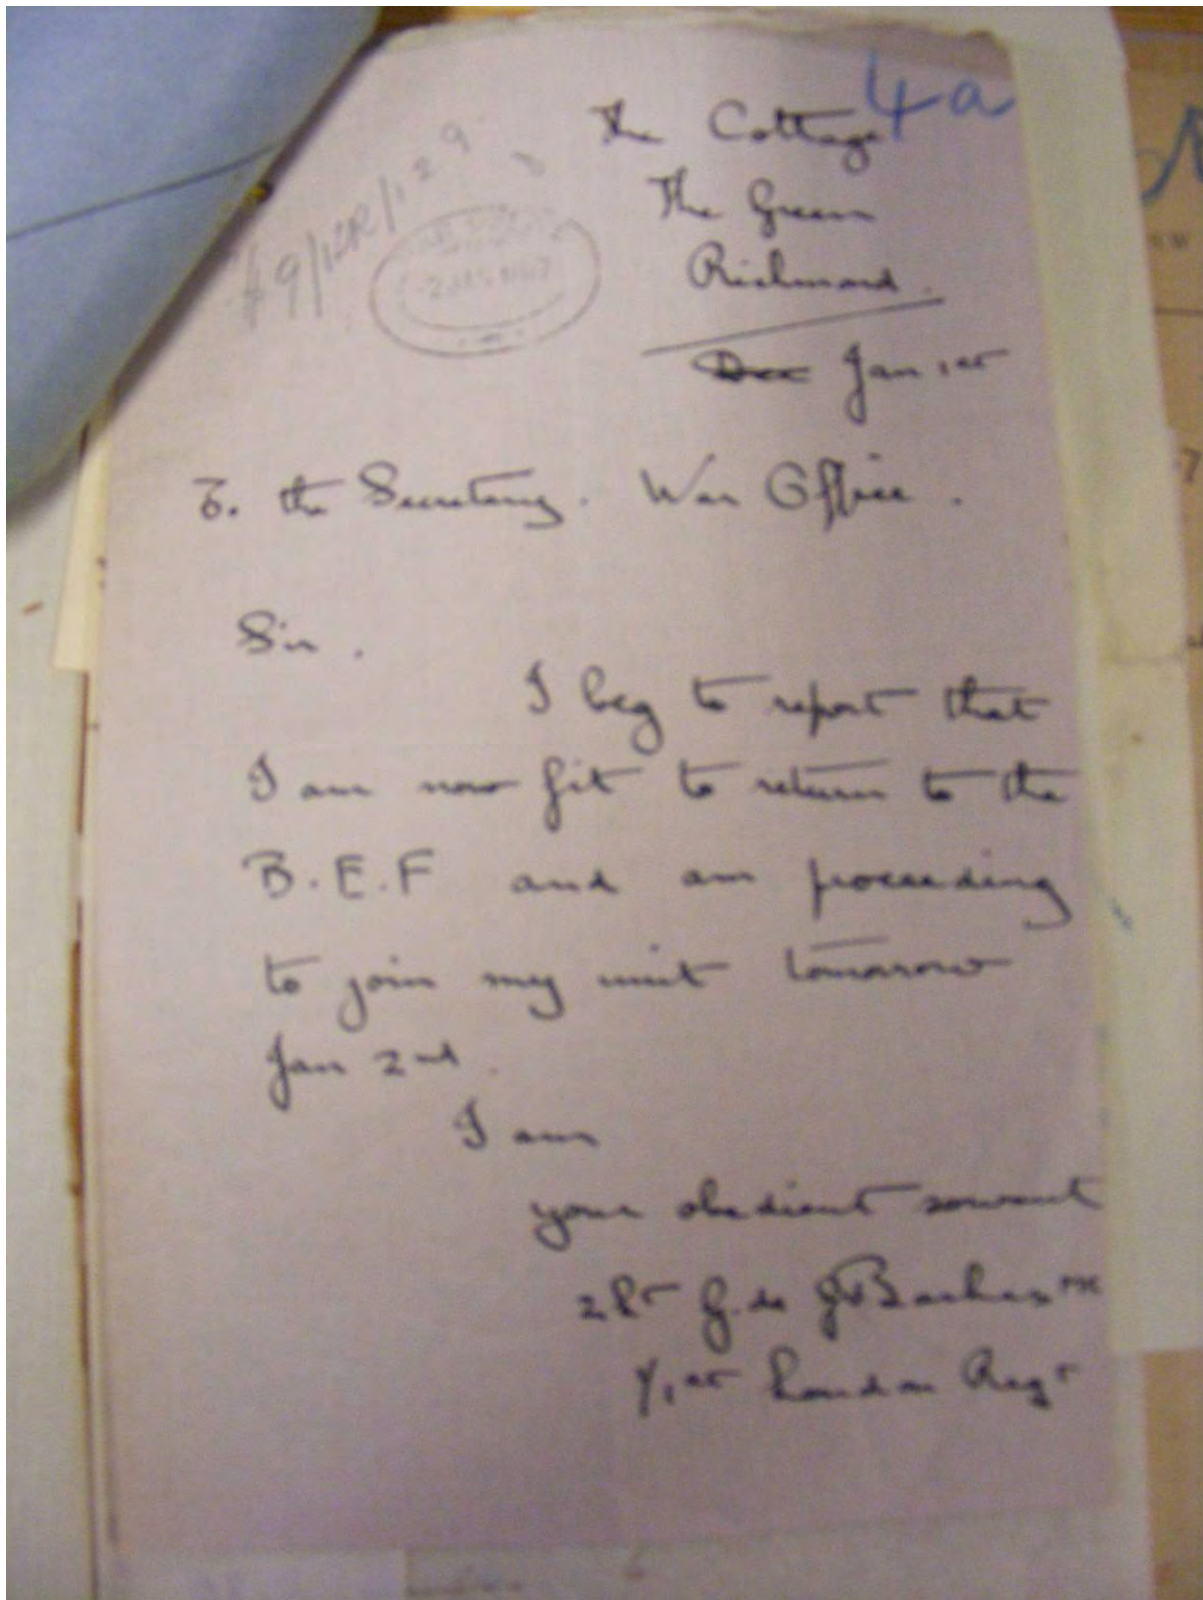 4a
The Cottage
The Green
Richmond.
Dec Jan 1st
To. the Secretary. War Office.
Sir.
I beg to report that
I am now fit to return to the
B.E.F and am proceeding
to join my unit tomorrow
Jan 2nd.
I am
your obedient servant
2Lt G. de
1/1st London Regt